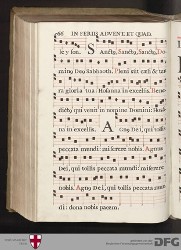 66 IN FERIIS ADVENT. ET QUAD.
le y son. Sanctus, Sanctus, Sanctus, Do-
minus Deus Sabbaoth. Pleni sunt cæli & ter-
ra gloria tua: Hosanna in excelsis. Bene-
dictus, qui venit in nomine Domini: Hosan-
na in excelsis. Agnus Dei, qui tollis
peccata mundi: miserere nobis. Agnus
Dei, qui tollis peccata mundi: miserere
nobis. Agnus Dei, qui tollis peccata mun-
di: dona nobis pacem.
DFG